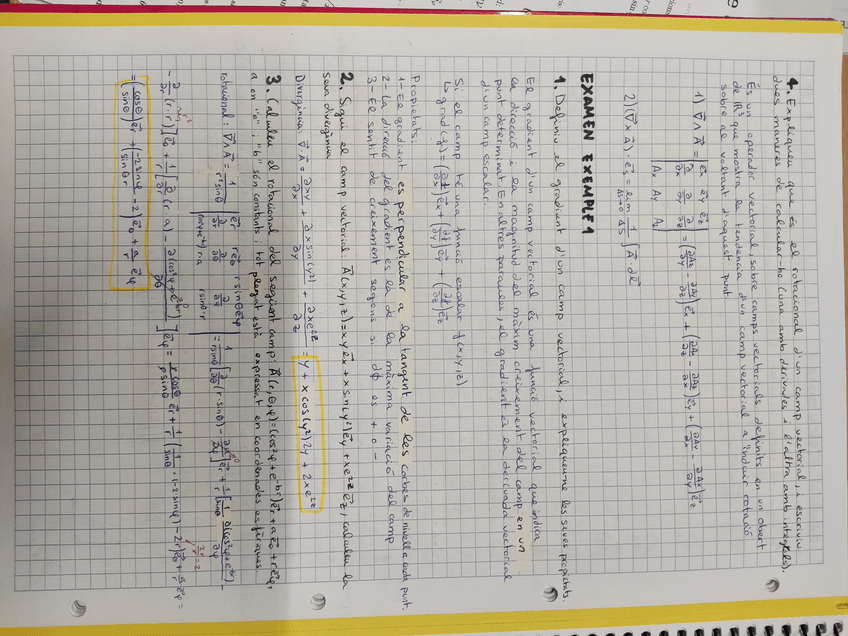 4. Expliqueu que és el rotacional d'un camp vectorial, i escriviu
dues maneres de calcular-ho (una amb derivades i l'altra amb integrals).
És un operador vectorial, sobre camps vectorials definits en un obert
de ℝ³ que mostra la tendencia d'un camp vectorial a induir rotació
sobre al voltant d'aquest punt
1) ∇⃗ ∧ A⃗ = | e⃗x e⃗y e⃗z ; ∂/∂x ∂/∂y ∂/∂z ; Ax Ay Az | = (∂Az/∂y - ∂Ay/∂z) e⃗x + (∂Ax/∂z - ∂Az/∂x) e⃗y + (∂Ay/∂x - ∂Ax/∂y) e⃗z
2) (∇⃗ x A⃗) · e⃗s = lim ΔS→0 1/ΔS ∫ A⃗ dl⃗
EXAMEN EXEMPLE 1
1. Definiu el gradient d'un camp vectorial, i expliqueu-ne les seves propietats.
El gradient d'un camp vectorial és una funció vectorial que indica
la direcció i la magnitud del màxim creixement del camp en un
punt determinat. En altres paraules, el gradient és la derivada vectorial
d'un camp escalar.
Si el camp té una funció escalar f(x,y,z)
↳ grad(f) = (∂f/∂x) e⃗x + (∂f/∂y) e⃗y (∂f/∂z) e⃗z
Propietats:
1- El gradient es perpendicular a la tangent de les corbes de nivell a cada punt.
2- La direcció del gradient es la de la màxima variació del camp
3- El sentit de creixement segons si dϕ es + o -
2. Sigui el camp vectorial A⃗(x,y,z) = xy e⃗x + x sin(y²) e⃗y + xe²ᶻ e⃗z, calculeu la
seva divergència.
Divergència: ∇⃗ · A⃗ = ∂xy/∂x + ∂x sin(y²)/∂y + ∂xe²ᶻ/∂z = y + x cos(y²)2y + 2xe²ᶻ
3. Calculeu el rotacional del següent camp: A⃗(r,θ,φ) = (cos²φ + e⁻ᵇʳ) e⃗r + a e⃗θ + r e⃗φ,
a on "a" i "b" són constants i tot plegat està expressat en coordenades esfèriques.
rotacional: ∇⃗ ∧ A⃗ = 1/(r² sinθ) | e⃗r r e⃗θ r sinθ e⃗φ ; ∂/∂r ∂/∂θ ∂/∂φ ; (cos²φ+e⁻ᵇʳ) r·a r sinθ·r | = 1/(r sinθ) [∂/∂θ (r·sinθ) - ∂a/∂φ] e⃗r + 1/r [1/sinθ ∂(cos²φ+e⁻ᵇʳ)/∂φ -
- ∂/∂r (r·r)] e⃗θ + 1/r [∂/∂r (r·a) - ∂(cos²φ+e⁻ᵇʳ)/∂θ] e⃗φ = r cosθ/(r sinθ) e⃗r + 1/r (1/sinθ · (-2 sinφ) - 2r) e⃗θ + a/r e⃗φ =
= (cosθ/sinθ) e⃗r + (-2sinφ/(sinθ r) - 2) e⃗θ + a/r e⃗φ